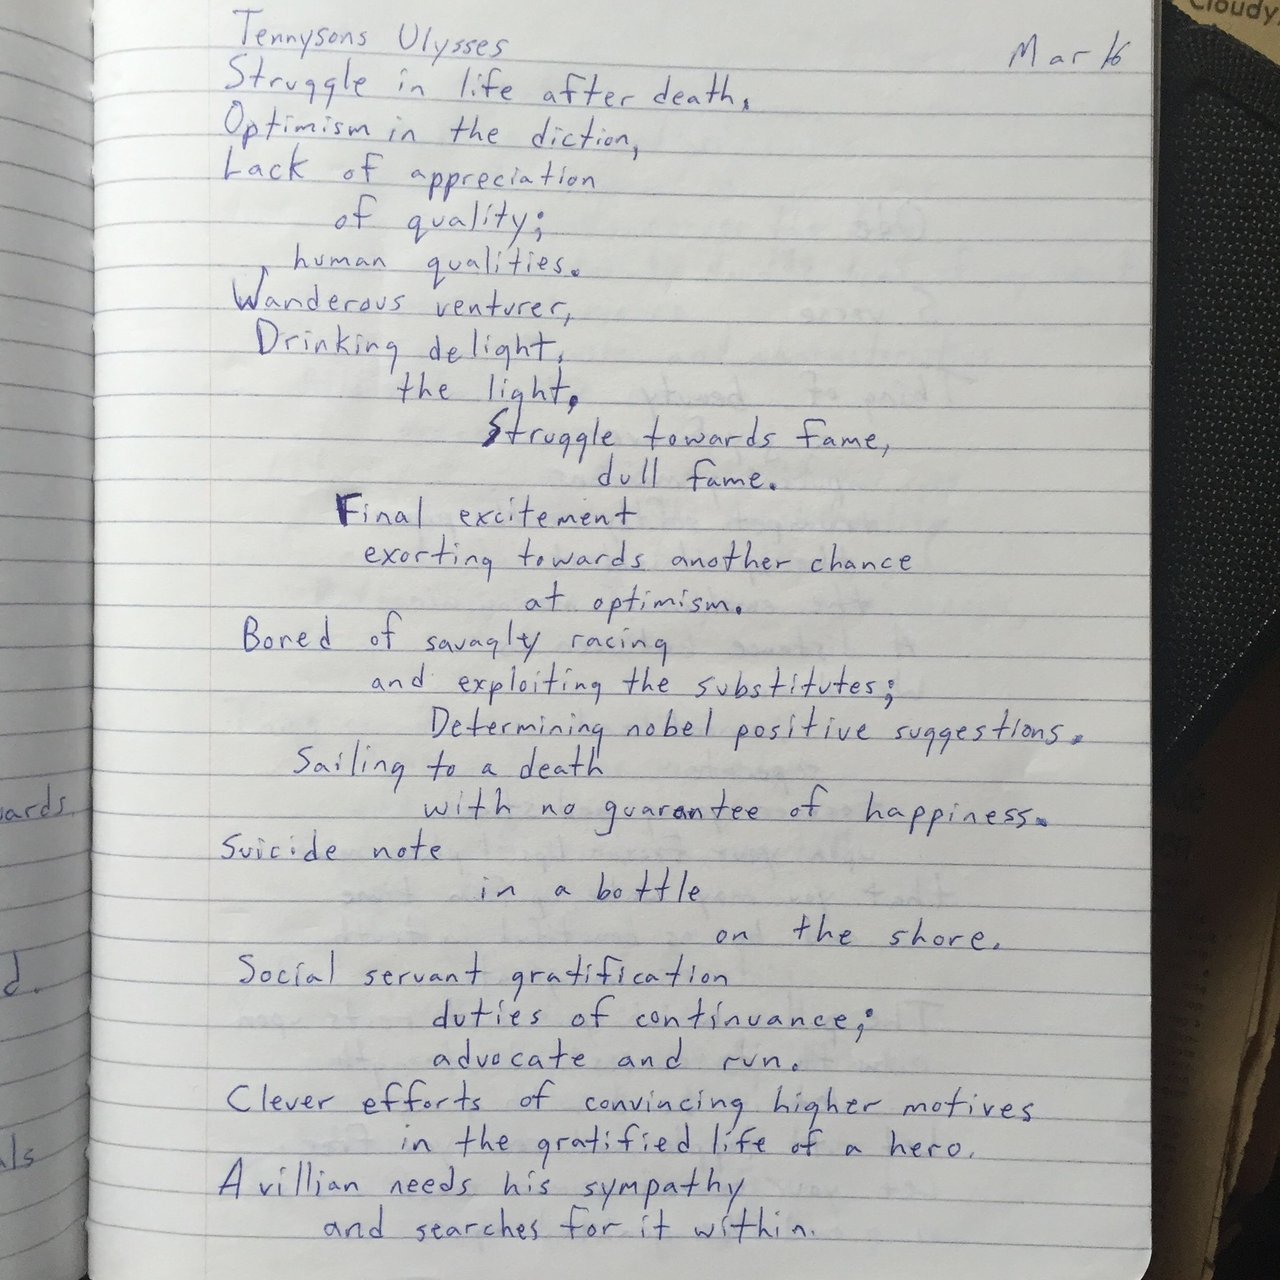 Cloudy
Tennysons Ulysses
Mar 16
Struggle in life after death,
Optimism in the diction,
Lack of appreciation
of quality;
human qualities.
Wanderous venturer,
Drinking delight,
the light,
Struggle towards fame,
dull fame.
Final excitement
exorting towards another chance
at optimism.
Bored of savagly racing
and exploiting the substitutes;
Determining nobel positive suggestions.
Sailing to a death
with no guarantee of happiness.
Suicide note
in a bottle
on the shore.
Social servant gratification
duties of continuance;
advocate and run.
Clever efforts of convincing higher motives
in the gratified life of a hero.
A villian needs his sympathy
and searches for it within.